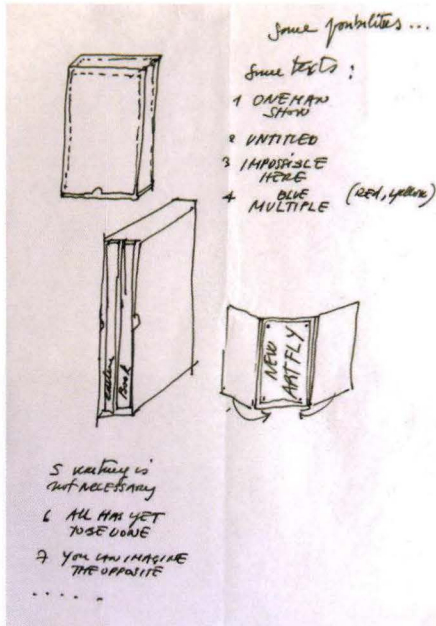 Some possibilities...
Some texts:
1 ONE MAN
SHOW
2 UNTITLED
3 IMPOSSIBLE
HERE
4 BLUE
MULTIPLE (RED, yellow)
Book
NEW
ARTFLY
5 is
not NECESSARY
6 ALL HAS YET
TO BE DONE
7 YOU CAN IMAGINE
THE OPPOSITE
. . . . .